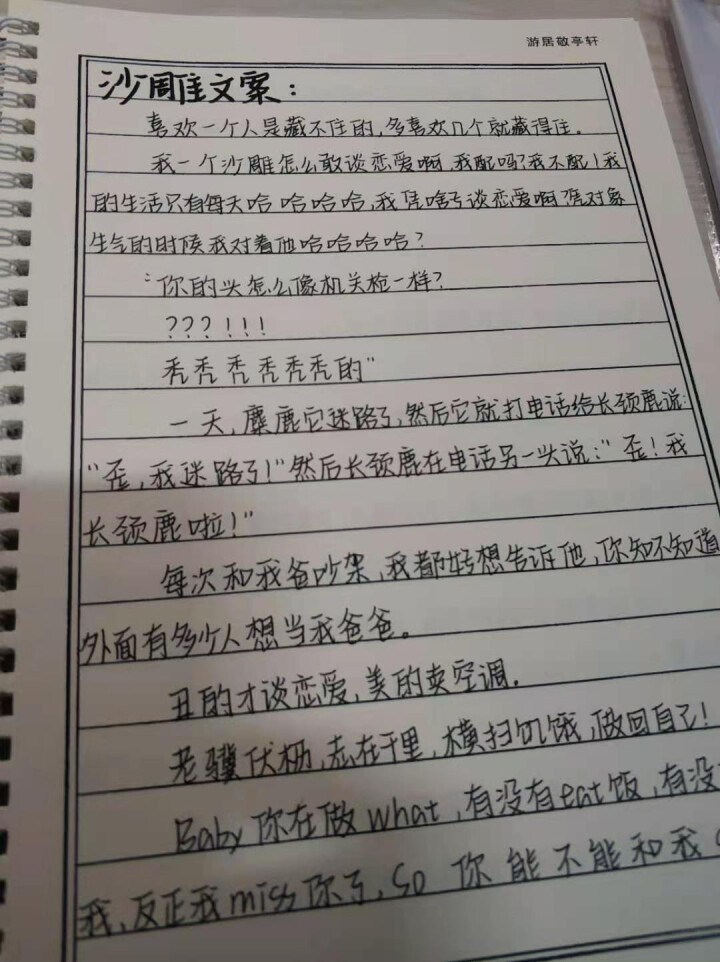 游居敬亭轩
沙雕文案：
喜欢一个人是藏不住的，多喜欢几个就藏得住。
我一个沙雕怎么敢谈恋爱啊，我配吗？我不配！我
的生活只有每天哈哈哈哈，我凭啥子谈恋爱啊？凭对象
生气的时候我对着他哈哈哈哈？
"你的头怎么像机关枪一样？
？？？！！！
秃秃秃秃秃秃的"
一天，麋鹿它迷路了，然后它就打电话给长颈鹿说：
"歪，我迷路了！"然后长颈鹿在电话另一头说："歪！我
长颈鹿啦！"
每次和我爸吵架，我都好想告诉他，你知不知道
外面有多少人想当我爸爸。
丑的才谈恋爱，美的卖空调。
老骥伏枥，志在千里，横扫饥饿，做回自己！
Baby你在做what，有没有eat饭，有没
我，反正我miss你了，so你能不能和我